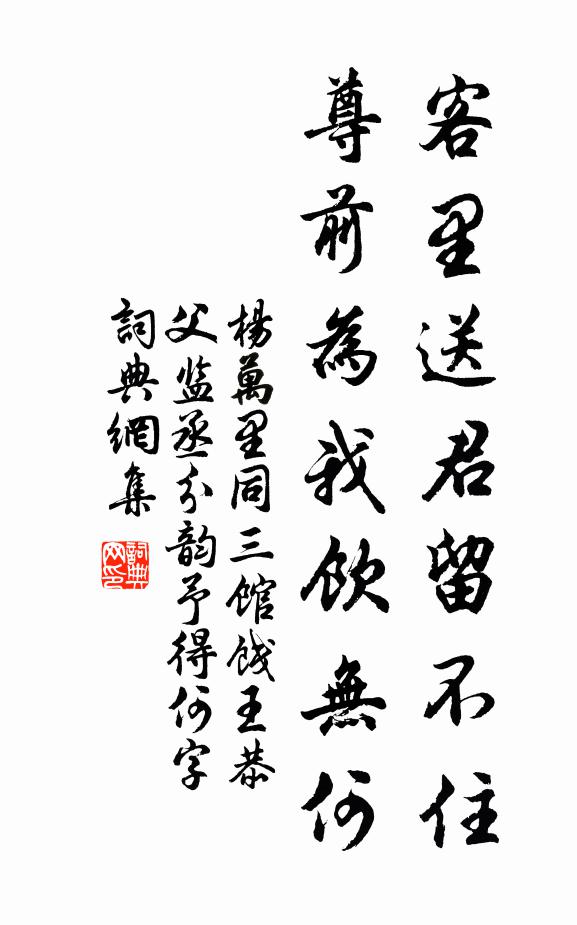 客里送君留不住
尊前為我飲無何
楊萬里同三館餞王恭
父監丞分韵予得何字
詞典網集
詞典网印